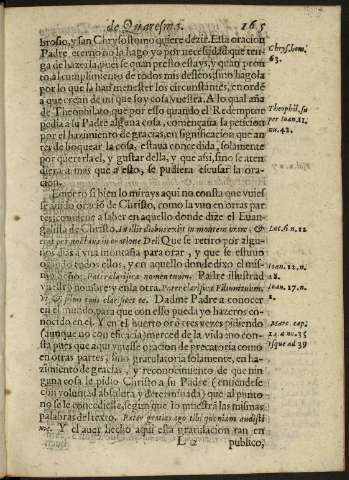 de Quaresma. 165
brosio, y san Chrysostomo quiere dezir. Esta oracion
Padre eterno no la hago yo por necessidad que ten-
ga de hazerla, pues se quan presto estays, y quan pron-
to al cumplimiento de todos mis desseos, sino hagola
por lo que la han menester los circunstantes, en orde
a que crean de mi que soy cosa vuestra. A lo qual aña
de Theophilato que por esso quando el Redemptor
pedia a su Padre alguna cosa, començaua la peticion
por el hazimiento de gracias, en significacion que an
tes de boquear la cosa, estaua concedida, solamente
por quererla el, y gustar della, y que assi, si no se aten
diera a mas que a esto, se pudiera escusar la ora-
cion.
Empero si bien lo mirays aqui no consta que vuies
se auido oracio de Christo, como la vuo en otras par
tes, conuiene a saber en aquello donde dize el Euan-
gelista de Christo. In illis diebus exijt in montem orare, &
erat per noctans in oratione Dei. Que se retiro por algu-
nos dias a vna montaña para orar, y que se estuuo
orando todos ellos, y en aquello donde dixo el mis-
mo Señor. Pater clarifica nomen tuum. Padre illustrad
vuestro nombre, y en la otra. Pater clarifica Filium tuum,
Dadme Padre a conocer
en el mundo, para que con esso pueda yo hazeros co-
nocido en el. Y en el huerto oro tres vezes pidiendo
(aunque no con eficacia) merced de la vida: no con-
sta pues que aqui vuiesse oracion de precatoria como
en otras partes, sino gratulatoria solamente, en ha-
zimiento de gracias, y reconocimiento de que nin-
guna cosa le pidio Christo a su Padre (entiendese
con voluntad absoluta y determinada) que al punto
no se le concediesse, segun que lo muestra las mismas
palabras del texto. Pater gratias ago tibi quoniam audisti
me. Y el auer hecho aqui esta gratulacion tan en
L 2 publico,
Chrys. hom.
63.
Theophil. su
per Ioan. 11.
nu. 42.
Luc. 6. n. 12
Ioan. 12. n.
28.
Ioan. 17. n.
1.
Marc. cap.
14. a nu. 35
usque ad 39